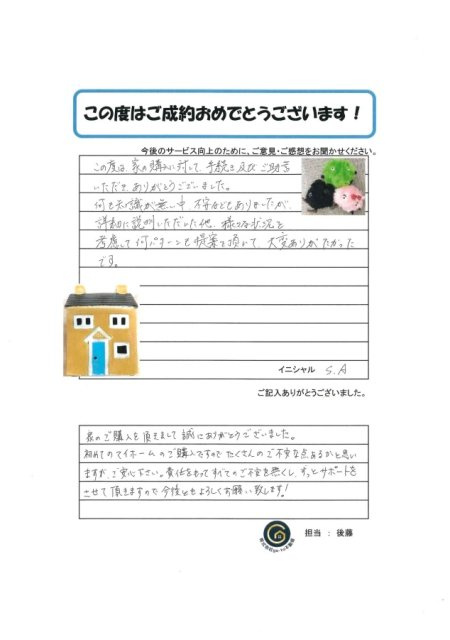 この度はご成約おめでとうございます！
今後のサービス向上のために、ご意見・ご感想をお聞かせください。
この度は、家の購入に対して、手続き及びご助言
いただき、ありがとうございました。
何も知識が無い中、不安などもありましたが、
詳細に説明いただいた他、様々な状況を
考慮して何パターンも提案を頂いて、大変ありがたかった
です。
イニシャル S.A
ご記入ありがとうございました。
家のご購入を頂きまして誠にありがとうございました。
初めてのマイホームのご購入ですのでたくさんのご不安な点あるかと思い
ますが、ご安心下さい。責任をもってすべてのご不安を無くし、ずっとサポートを
させて頂きますので今後ともよろしくお願い致します！
担当 ： 後藤